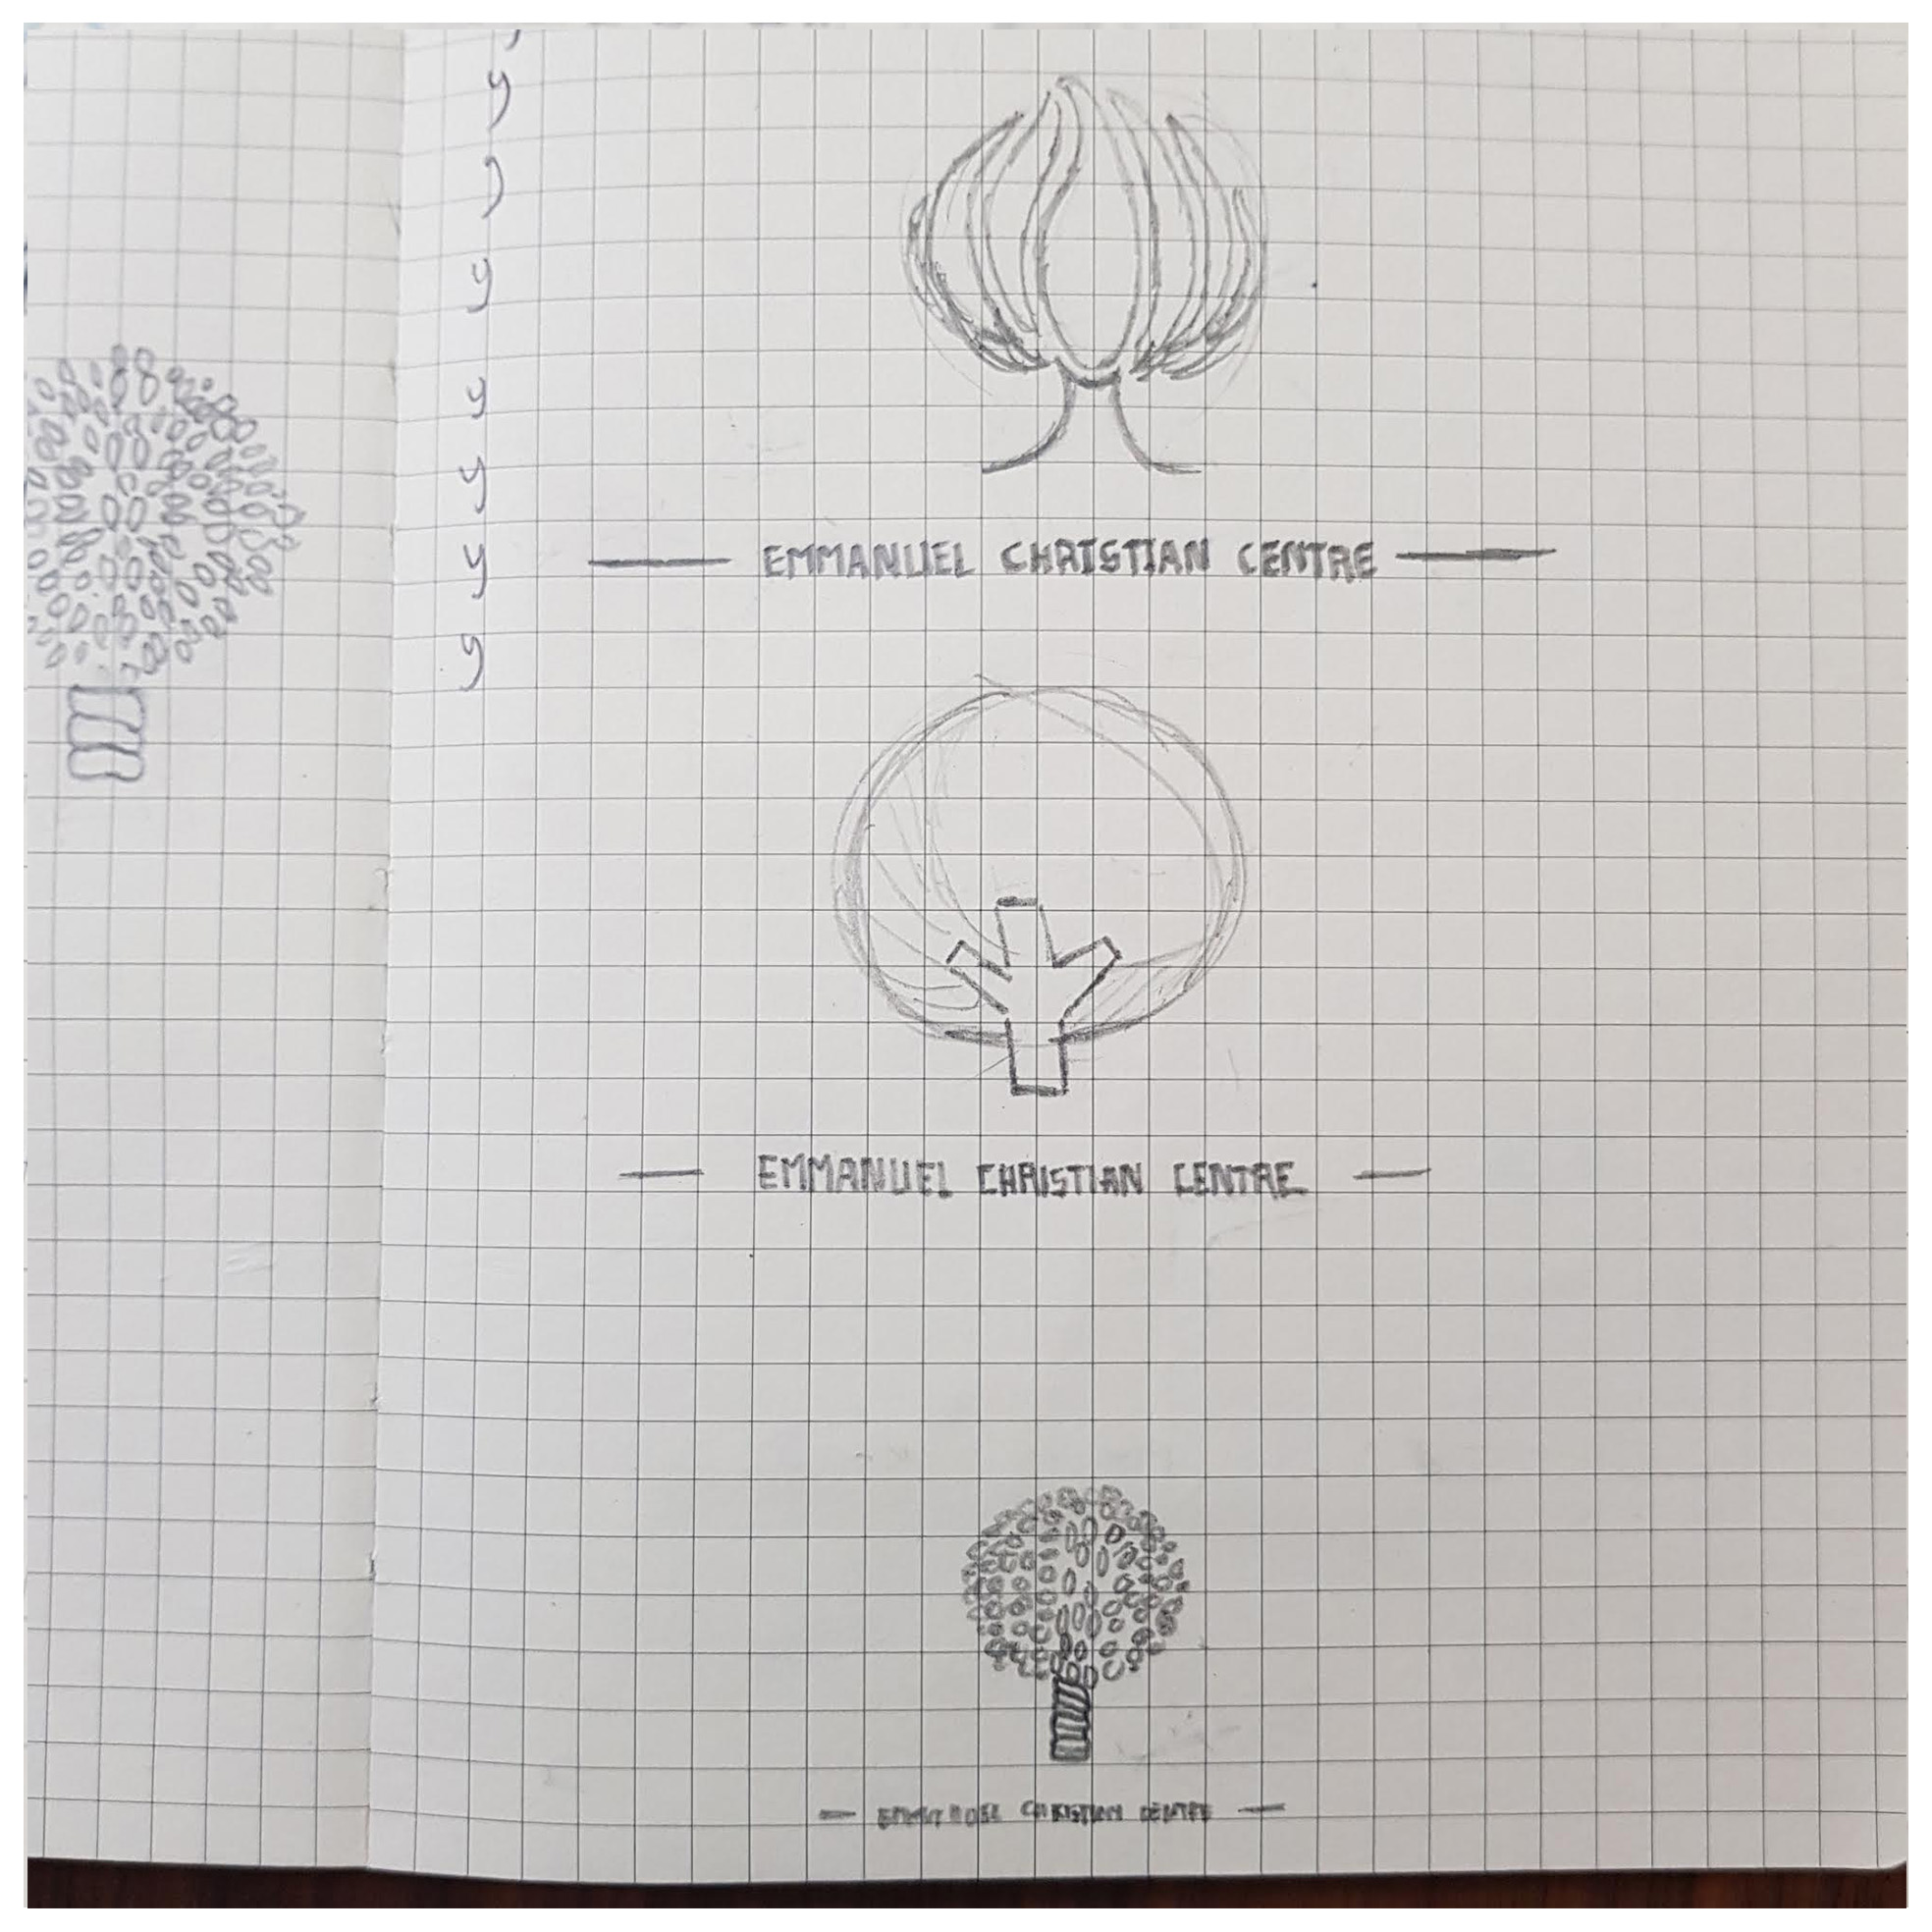 y
y
y
y
y
y
y
EMMANUEL CHRISTIAN CENTRE
EMMANUEL CHRISTIAN CENTRE
EMMANUEL CHRISTIAN CENTRE